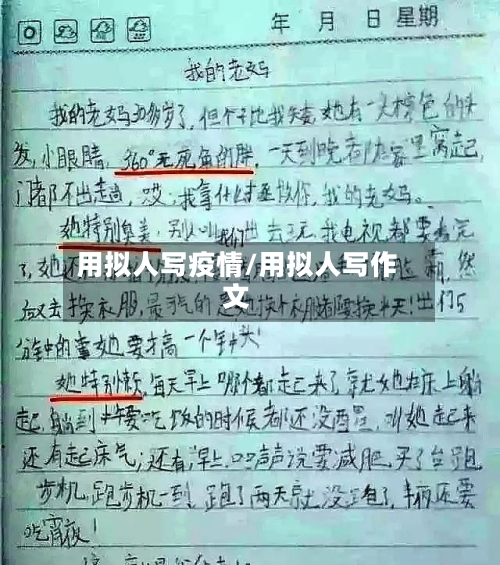 年 月 日 星期
我的老妈
我的老妈30多岁了,但个子比我矮,她有一头棕色的头
发,小眼睛,360°无死角的胖,一天到晚都在家里窝起,
门都不出走尚,哎,我拿什么拯救你,我的老妈。
她特别臭美,别人叫我们出去玩,我电视都要看完
了,她还
用拟人写疫情/用拟人写作
文
脸霜,然
后又去换衣服,最
分钟的事她要搞一个钟头!
她特别懒,每天早上哪个都走起来了,就她在床上躺
起,躺到中午要吃饭的时候都还没洒,叫她起来
还有起床气;还有,早上口口声声说要减肥,买了台跑
步机,跑步机一到,跑了两天就没跑了,半夜还要
吃宵夜!